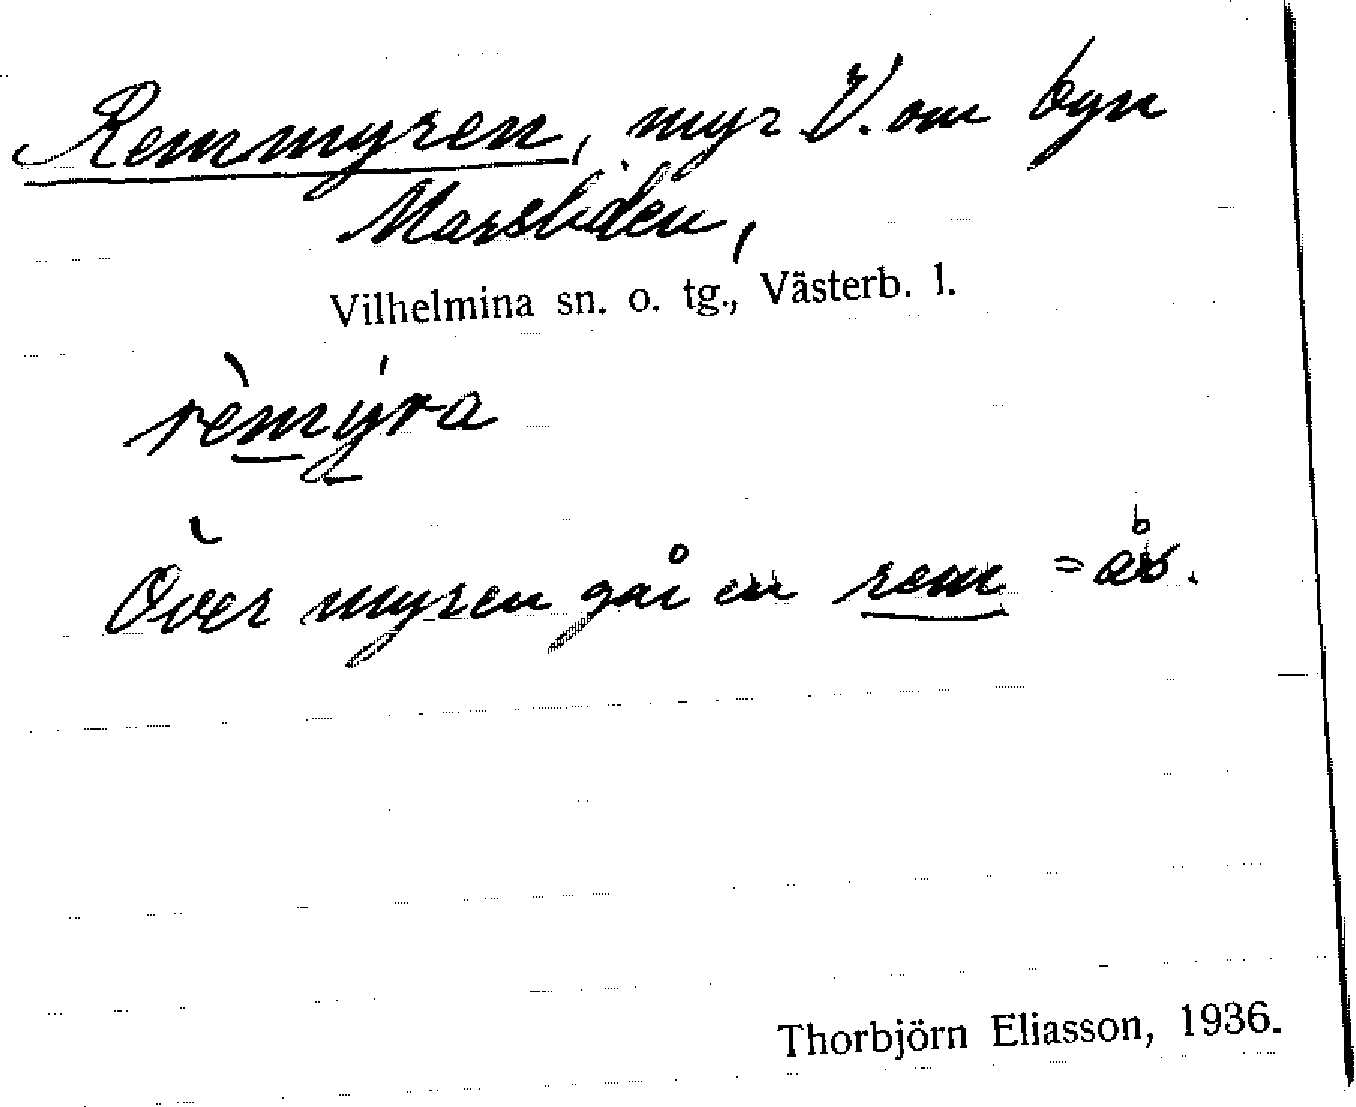 Remmyren, myr V. om byn
Marsliden,
Vilhelmina sn. o. tg., Västerb. l.
rèmýra
Över myren går en rem = ås.
Thorbjörn Eliasson, 1936.